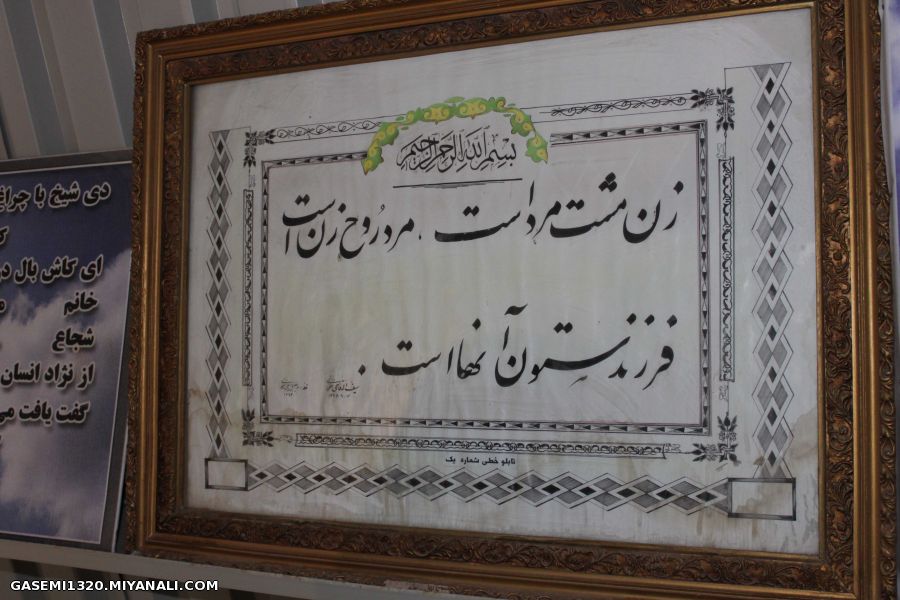 بسم الله الرحمن الرحیم
زن مشت مرد است ، مرد روح زن است
فرزند ستون آنها است .
تابلو خطی شماره یک
دی شیخ با چراغ
ای کاش بال در
خانم
شجاع
از نژاد انسان
گفت یافت می
GASEMI1320.MIYANALI.COM